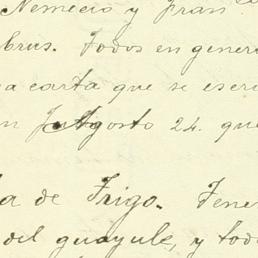 Nemecio y Fran
brus. Todos en gener
a carta que se escri
n Agosto 24. que
a de Trigo. Tene
del guayule, y tod